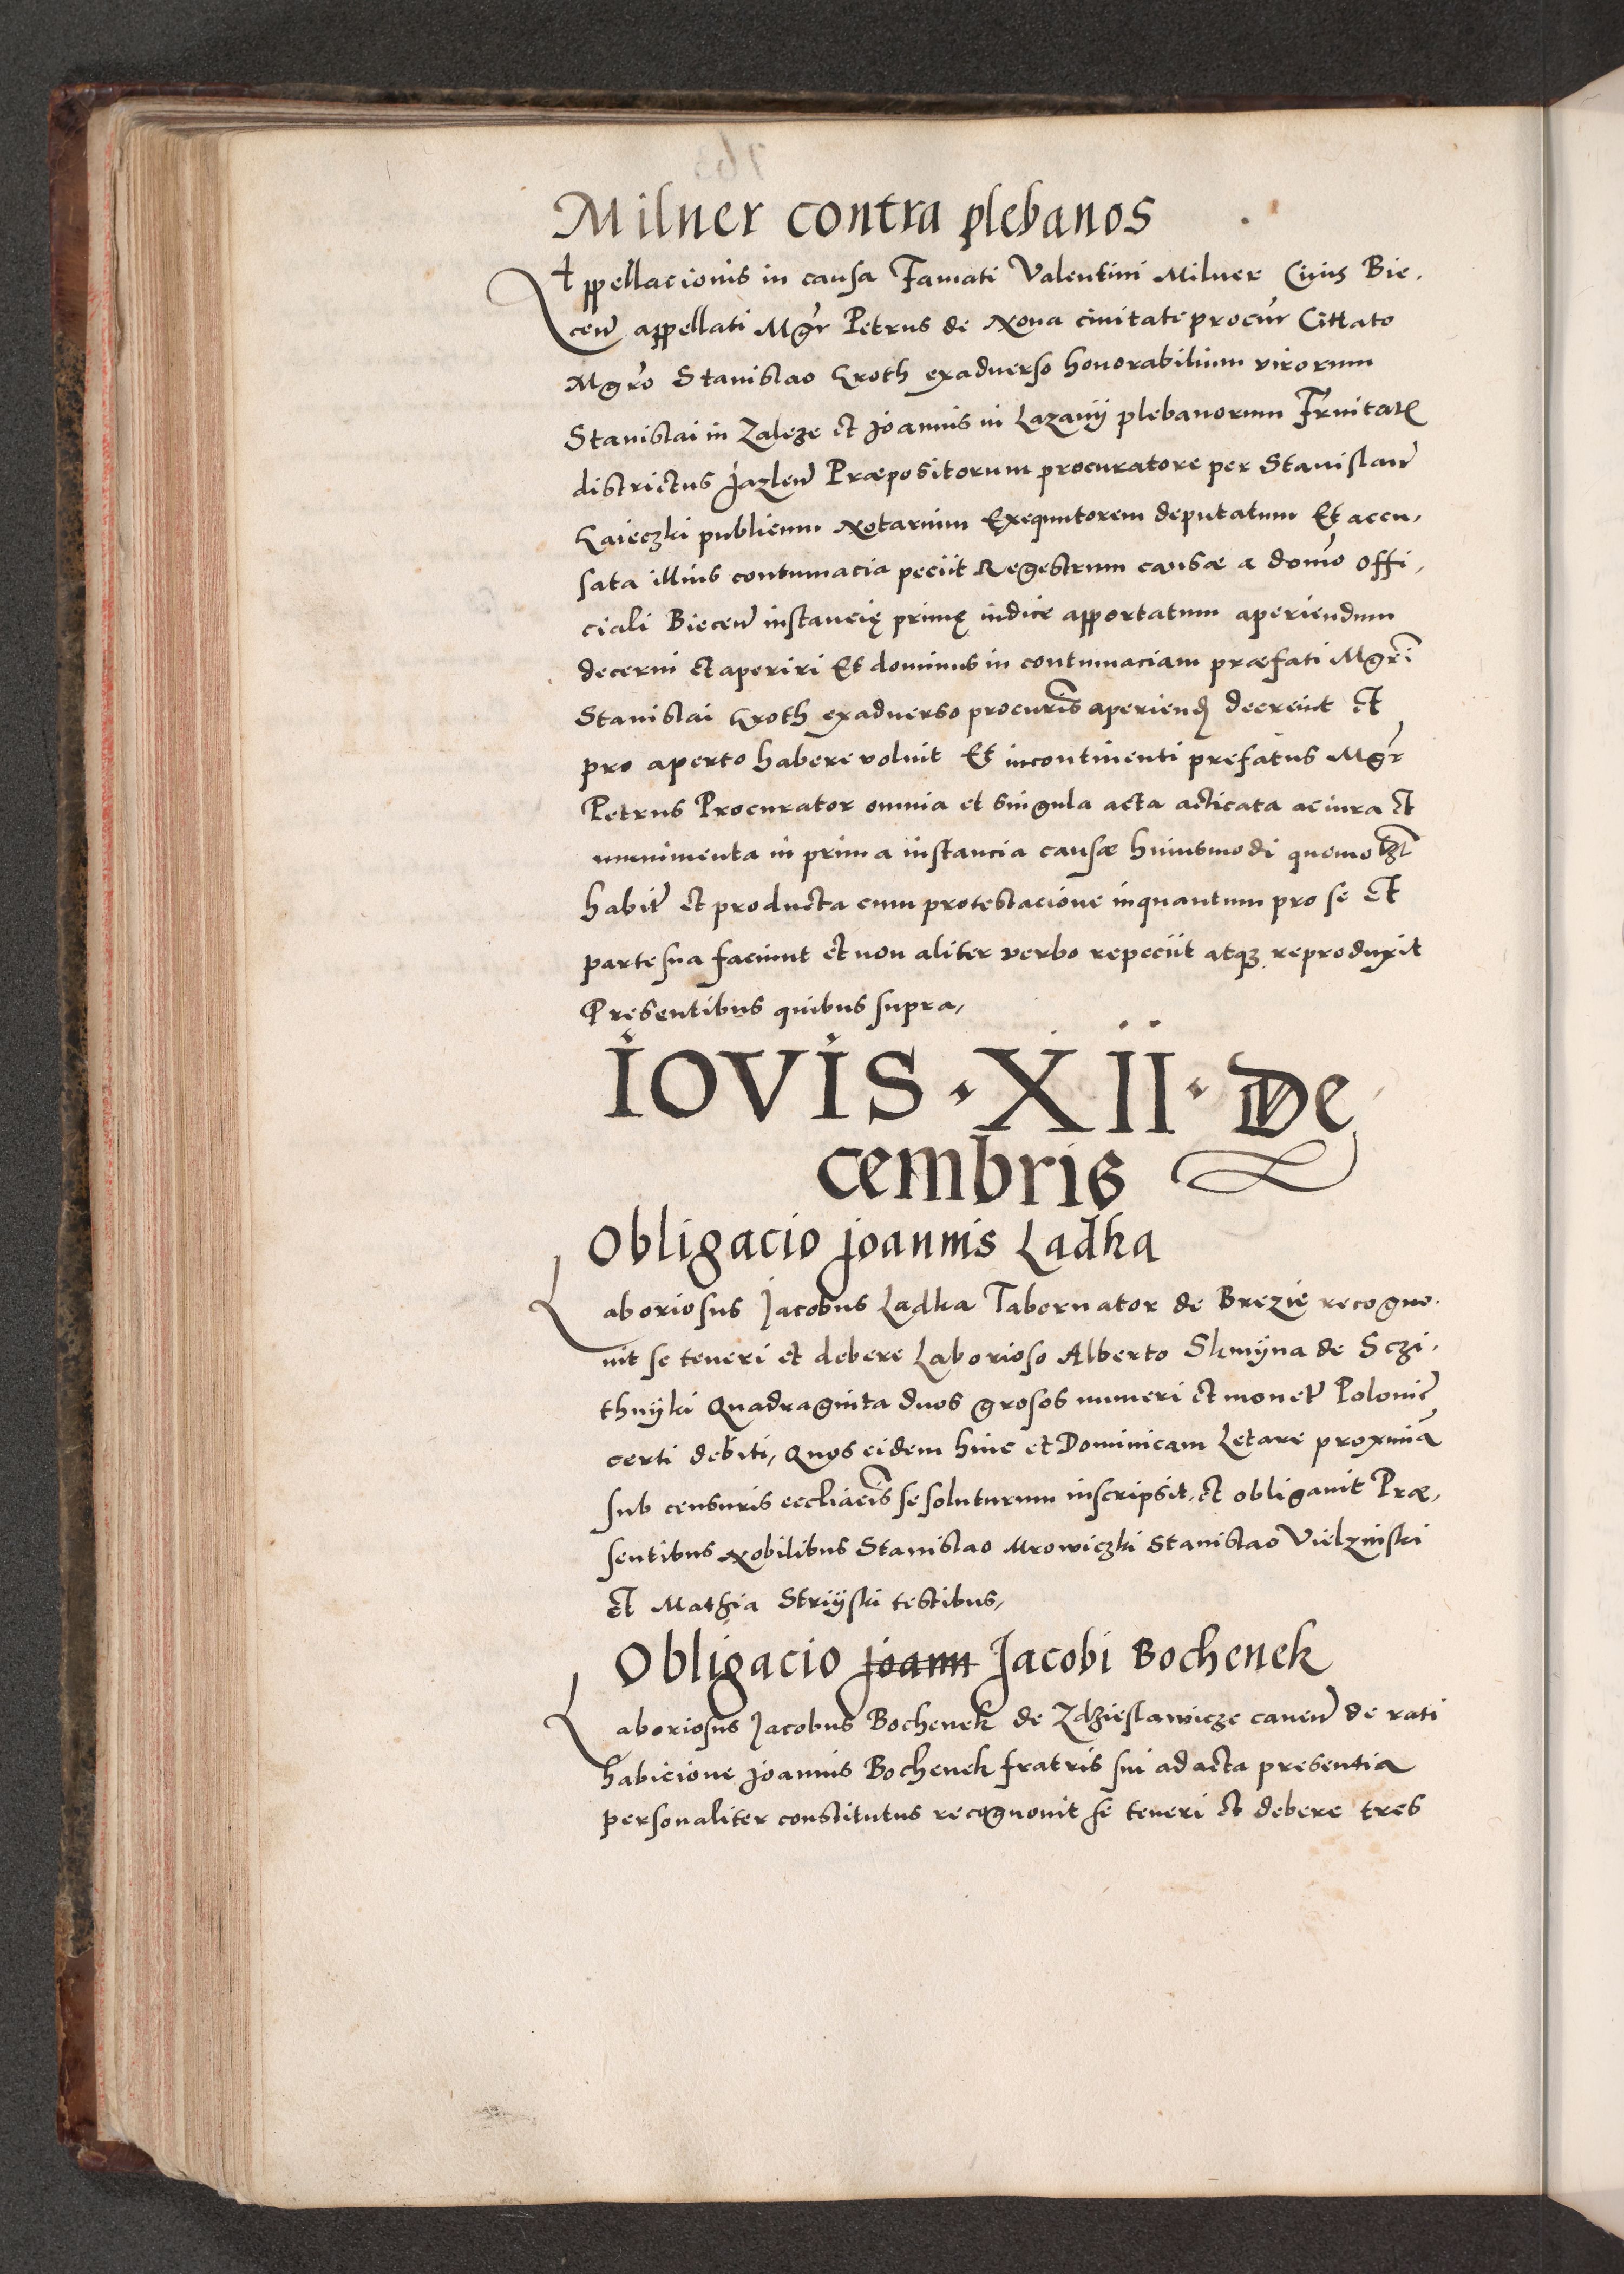 Milner contra plebanos
Appellacionis in causa Famati Valentini Milner Civis Bie,
cen̄ appellati Mgr̄ Petrus de Nova civitate procur̄ Cittato
Mgr̄o Stanislao Groth exadverso honorabilium virorum
Stanislai in Zaleze et Joannis in Lazany plebanorum Fr̄nitatꝭ
districtus Jazlen̄ Præpositorum procuratore per Stanislaū
Gaieczki publicum Notarium Exequutorem deputatum Et accu,
sata illius contumacia peciit Regestrum causæ a domō offi,
ciali Biecen̄ instancię primę iudice apportatum aperiendum
decerni et aperiri Et dominus in contumaciam præfati Mgr̄i
Stanislai Groth exadverso procurīs aperiend̄ decrevit et
pro aperto habere voluit Et incontinenti prefatus Mgr̄
Petrus Procurator omnia et singula acta acticata ac iura et
munimenta in prima instancia causæ huiusmodi quomōlȝt
habit̄ et producta cum protestacione inquantum pro se et
parte sua faciunt et non aliter verbo repeciit atqꝫ reproduxit
Pręsentibus quibus supra,
IOVIS · XII · De
cembris
Obligacio Joannis Ladka
Laboriosus Jacobus Ladka Tabernator de Brezie recogno,
vit se teneri et debere Laborioso Alberto Slomyna de Sczi,
thnyki Quadraginta duos grosos numeri et monet̄ Polonic̄
certi debiti, Quos eidem hinc et Dominicam Letare proximā
sub censuris eccliacīs se soluturum inscripsit, et obligavit Præ,
sentibus Nobilibus Stanislao Mrowiczki Stanislao Vielzinski
et Mathia Stryiski testibus,
Obligacio Joann Jacobi Bochenek
Laboriosus Jacobus Bochenek de Zdzieslawicze caven̄ de rati
habicione Joannis Bochenek fratris sui ad acta presentia
personaliter constitutus recognovit se teneri et debere tres